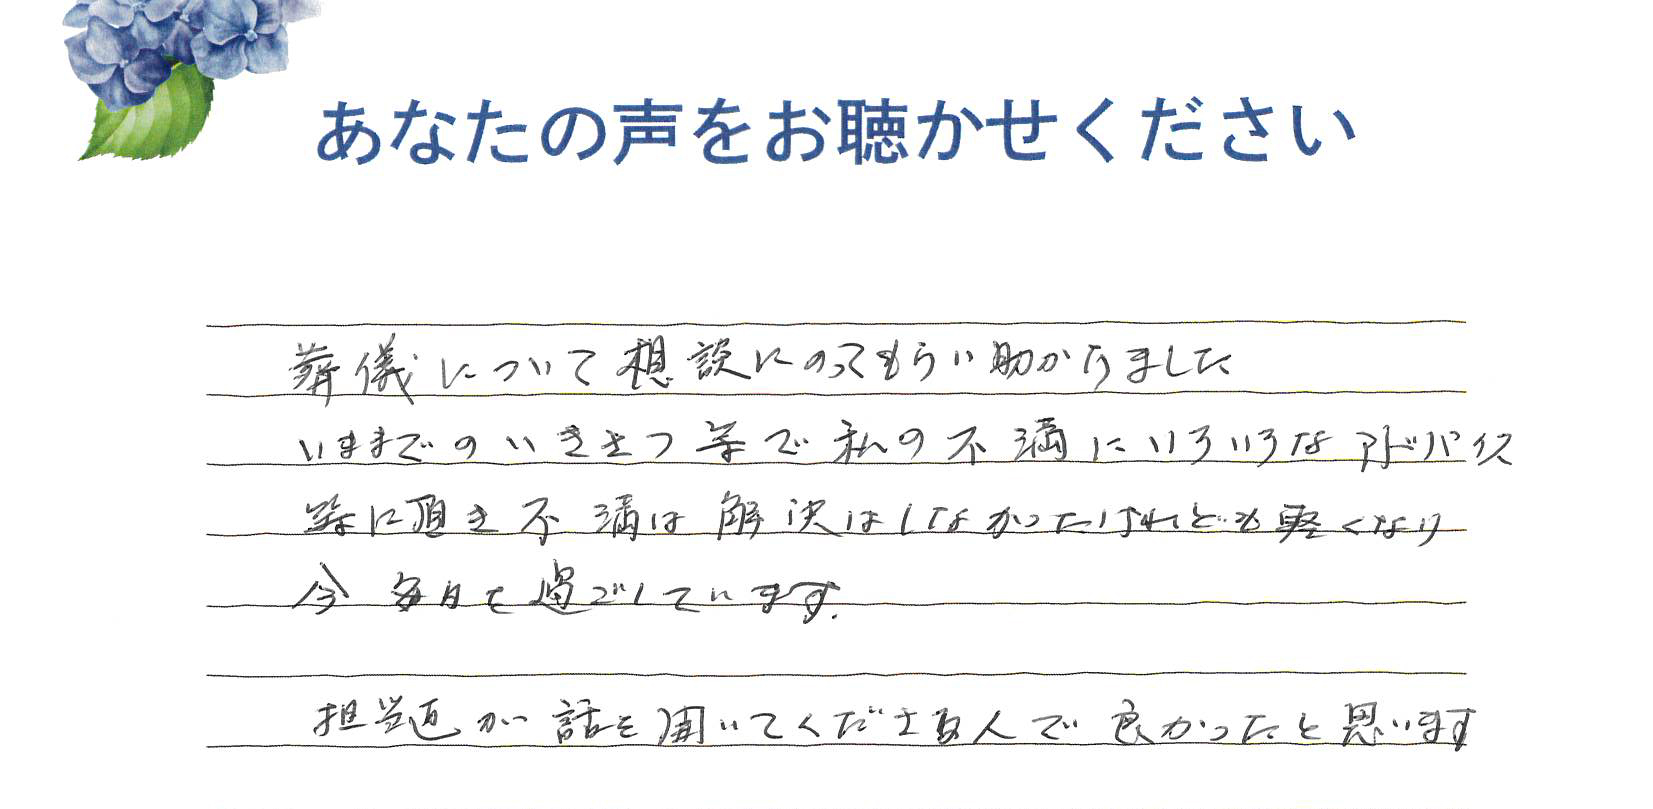 あなたの声をお聴かせください
葬儀について相談にのってもらい助かりました
いままでのいきさつ等で私の不満にいろいろなアドバイス
等に頂き不満は解決はしなかったけれども軽くなり
今毎日を過ごしています.
担当 が話を聞いてくださる人で良かったと思います